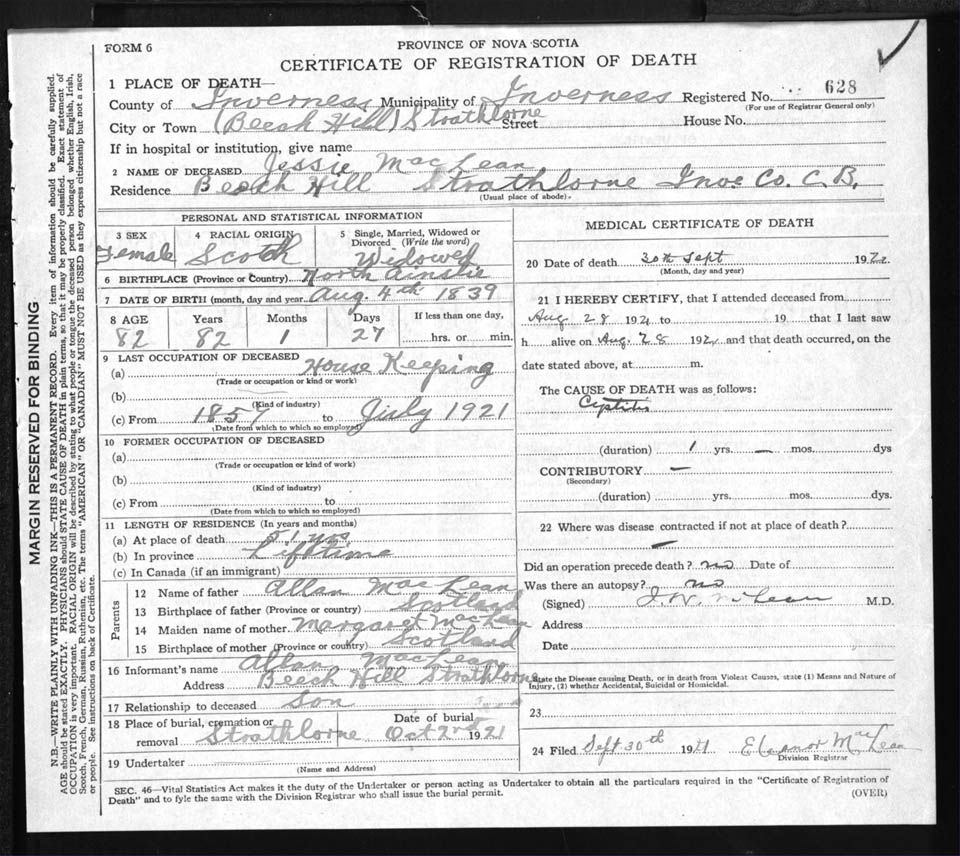 FORM 6
PROVINCE OF NOVA SCOTIA
CERTIFICATE OF REGISTRATION OF DEATH
1 PLACE OF DEATH—
County of Inverness Municipality of Inverness Registered No. 628
(For use of Registrar General only)
City or Town (Beech Hill) Strathlorne Street House No.
If in hospital or institution, give name
2 NAME OF DECEASED Jessie MacLean
Residence Beech Hill Strathlorne Inve Co. C.B.
(Usual place of abode)
PERSONAL AND STATISTICAL INFORMATION
3 SEX
Female
4 RACIAL ORIGIN
Scotch
5 Single, Married, Widowed or Divorced (Write the word)
Widowed
6 BIRTHPLACE (Province or Country) North Ainslie
7 DATE OF BIRTH (month, day and year) Aug. 4th 1839
8 AGE Years Months Days If less than one day,
82 82 1 27 hrs. or min.
9 LAST OCCUPATION OF DECEASED
(a) House Keeping
(Trade or occupation or kind or work)
(b)
(Kind of industry)
(c) From 1857 to July 1921
(Date from which to which so employed)
10 FORMER OCCUPATION OF DECEASED
(a)
(Trade or occupation or kind of work)
(b)
(Kind of industry)
(c) From to
(Date from which to which so employed)
11 LENGTH OF RESIDENCE (In years and months)
(a) At place of death
(b) In province Lifetime
(c) In Canada (if an immigrant)
Parents
12 Name of father Allan MacLean
13 Birthplace of father (Province or country) Scotland
14 Maiden name of mother Margaret MacLean
15 Birthplace of mother (Province or country) Scotland
16 Informant's name Allan MacLean
Address Beech Hill Strathlorne
17 Relationship to deceased Son
18 Place of burial, cremation or removal Strathlorne Date of burial Oct 2nd 1921
19 Undertaker
(Name and Address)
MEDICAL CERTIFICATE OF DEATH
20 Date of death 30th Sept 192
(Month, day and year)
21 I HEREBY CERTIFY, that I attended deceased from
Aug 28 1921 to 19 that I last saw
h alive on Aug 28 192 and that death occurred, on the
date stated above, at m.
The CAUSE OF DEATH was as follows:
(duration) 1 yrs. — mos. dys
CONTRIBUTORY —
(Secondary)
(duration) yrs. mos. dys.
22 Where was disease contracted if not at place of death?
—
Did an operation precede death? no Date of
Was there an autopsy? no
(Signed) McLean M.D.
Address
Date
State the Disease causing Death, or in death from Violent Causes, state (1) Means and Nature of
Injury, (2) whether Accidental, Suicidal or Homicidal.
23
24 Filed Sept 30th 1921 Eleanor MacLean
Division Registrar
SEC. 46—Vital Statistics Act makes it the duty of the Undertaker or person acting as Undertaker to obtain all the particulars required in the "Certificate of Registration of
Death" and to fyle the same with the Division Registrar who shall issue the burial permit.
(OVER)
MARGIN RESERVED FOR BINDING
N.B.—WRITE PLAINLY WITH UNFADING INK—THIS IS A PERMANENT RECORD. Every item of information should be carefully supplied.
AGE should be stated EXACTLY. PHYSICIANS should STATE CAUSE OF DEATH in plain terms, so that it may be properly classified. Exact statement of
OCCUPATION is very important. RACIAL ORIGIN will be described by stating to what people or tongue the deceased person belonged whether English, Irish,
Scotch, French, German, Russian, Ruthenian, etc. The terms "AMERICAN" OR "CANADIAN" MUST NOT BE USED as they express citizenship but not a race
or people. See instructions on back of Certificate.